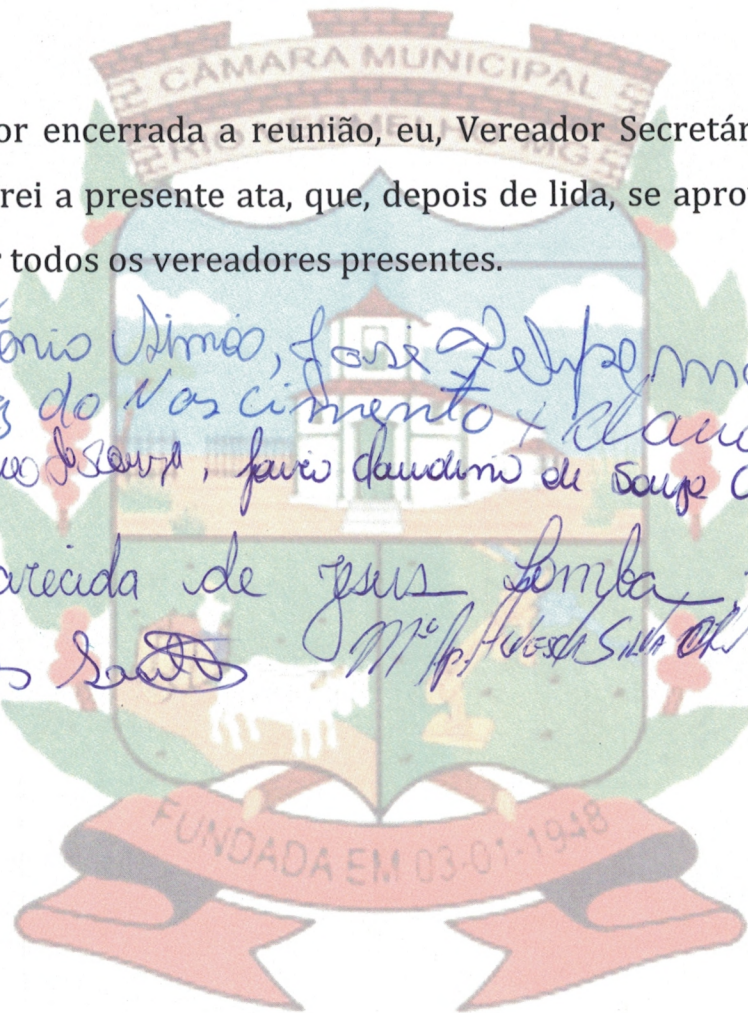 CÂMARA MUNICIPAL
or encerrada a reunião, eu, Vereador Secretár
rei a presente ata, que, depois de lida, se apro
todos os vereadores presentes.
ônio Simão, José Felipe
do Nascimento
de Souza, Claudino de Souza
arecida de Jesus Lomba
Mª Ap. Alves da Silva
FUNDADA EM 03-01-1948